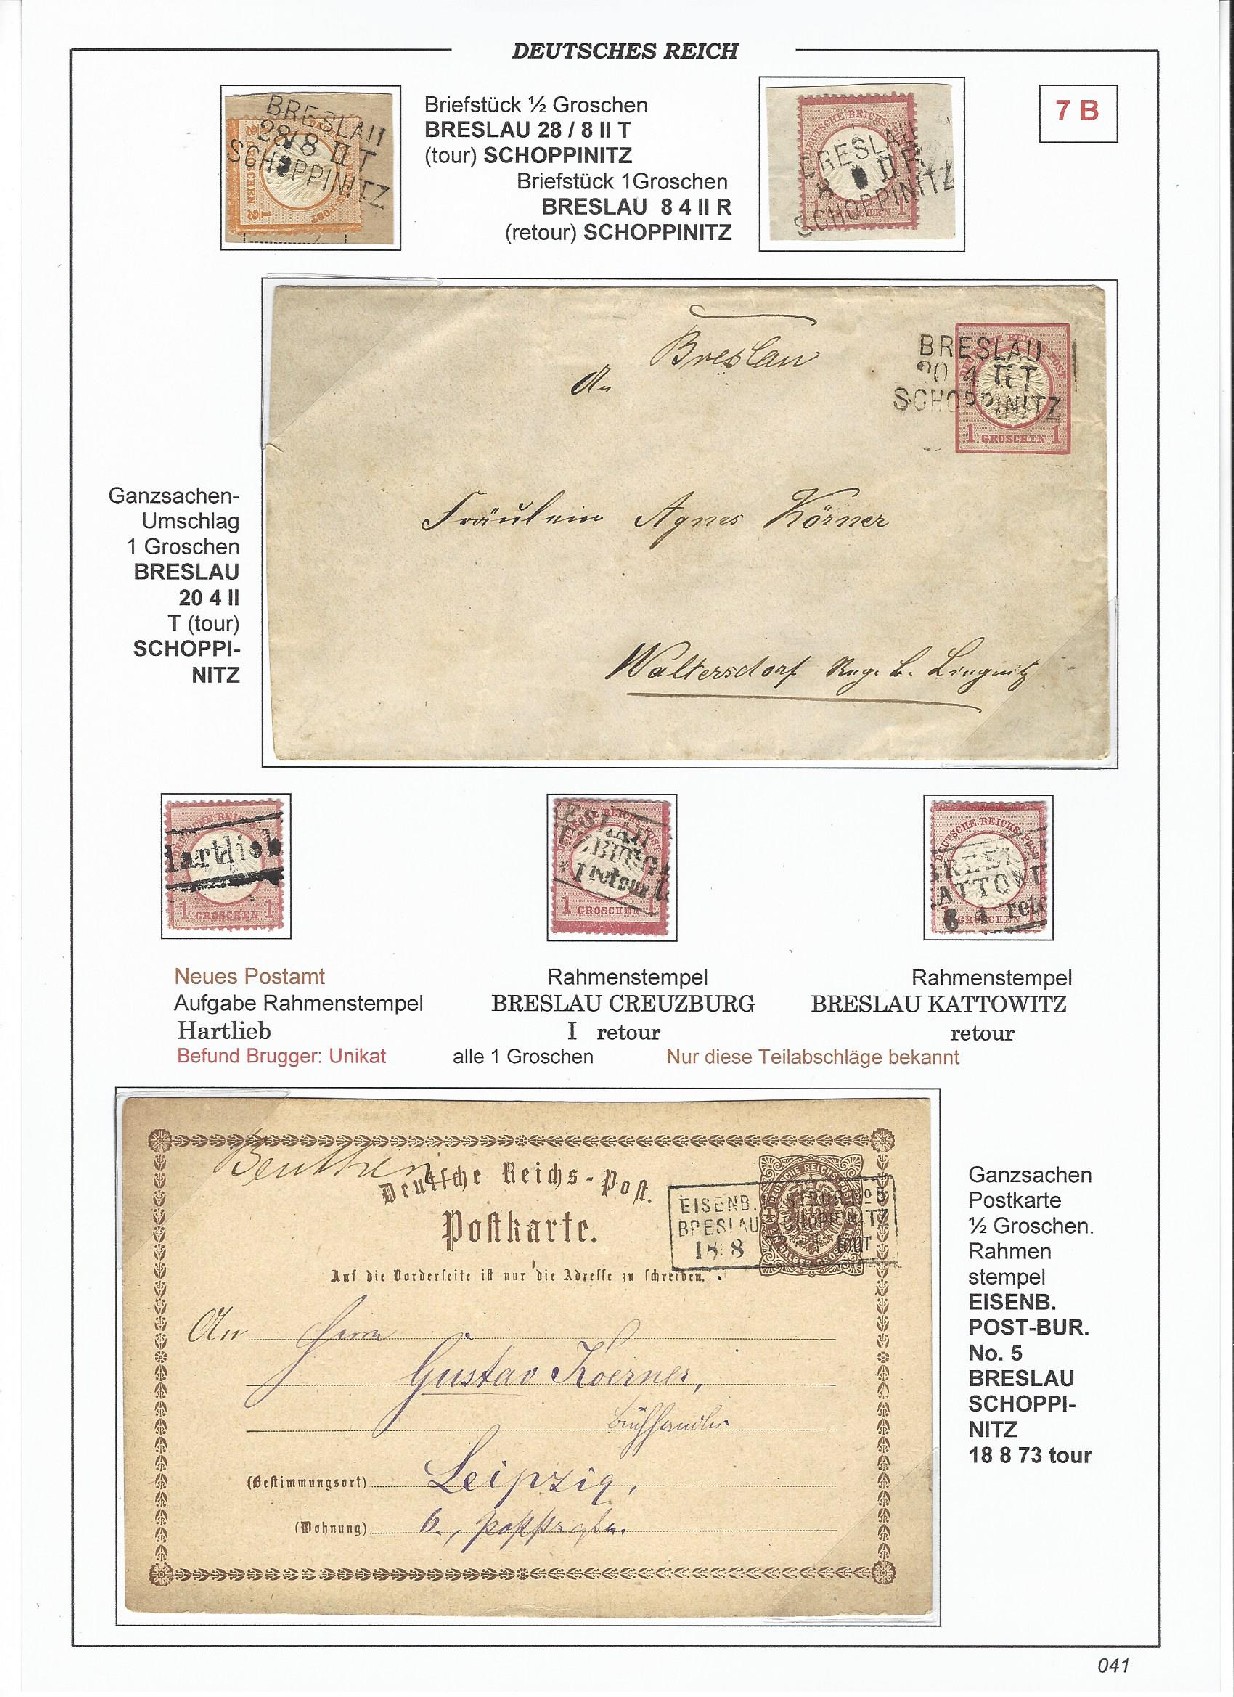 DEUTSCHES REICH
7 B
BRESLAU
28/8 II T
SCHOPPINITZ
Briefstück ½ Groschen
BRESLAU 28 / 8 II T
(tour) SCHOPPINITZ
Briefstück 1Groschen
BRESLAU 8 4 II R
(retour) SCHOPPINITZ
RESLAU
SCHOPPINITZ
Breslau
An
BRESLAU
20 4 II T
SCHOPPINITZ
1 GROSCHEN 1
Fräulein Agnes Körner
Waltersdorf
Ganzsachen-
Umschlag
1 Groschen
BRESLAU
20 4 II
T (tour)
SCHOPPI-
NITZ
Hartlieb
1 GROSCHEN 1
retour
1 GROSCHEN
DEUTSCHE REICHS-POST
ATTOW
6 4 reto
Neues Postamt
Aufgabe Rahmenstempel
Hartlieb
Befund Brugger: Unikat
Rahmenstempel
BRESLAU CREUZBURG
I retour
alle 1 Groschen
Rahmenstempel
BRESLAU KATTOWITZ
retour
Nur diese Teilabschläge bekannt
Beuthen
Deutsche Reichs-Post.
Postkarte.
EISENB.
BRESLAU
18 8
tour
Auf die Vorderseite ist nur die Adresse zu schreiben.
An Herrn
Gustav Koerner,
Buchhändler
(Bestimmungsort) Leipzig,
(Wohnung)
Ganzsachen
Postkarte
½ Groschen.
Rahmen
stempel
EISENB.
POST-BUR.
No. 5
BRESLAU
SCHOPPI-
NITZ
18 8 73 tour
041